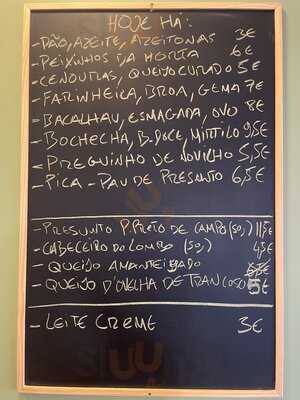 HOJE HÁ:
- PÃO, AZEITE, AZEITONAS 3€
- PEIXINHOS DA HORTA 6€
- CENOURAS, QUEIJO CURADO 5€
- FARINHEIRA, BROA, GEMA 7€
- BACALHAU, ESMAGADA, OVO 8€
- BOCHECHA, B. DOCE, MIRTILO 9,5€
- PREGUINHO DE NOVILHO 5,5€
- PICA-PAU DE PRESUNTO 6,5€
- PRESUNTO P. PRETO DE CAMPO (50g) 11,5€
- CABECEIRO DO LOMBO (50g) 4,5€
- QUEIJO AMANTEIGADO
- QUEIJO D'OVELHA DE TRANCOSO 5€
- LEITE CREME 3€